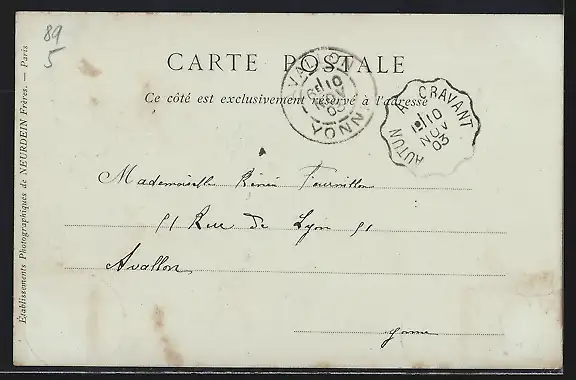 89
5
CARTE POSTALE
Ce côté est exclusivement réservé à l'adresse
AVALLON
10
NOV
03
YONNE
AUTUN A CRAVANT
10
NOV
03
Mademoiselle Renée
51 Rue de Lyon 51
Avallon
Yonne
Etablissements Photographiques de NEURDEIN Frères. — Paris